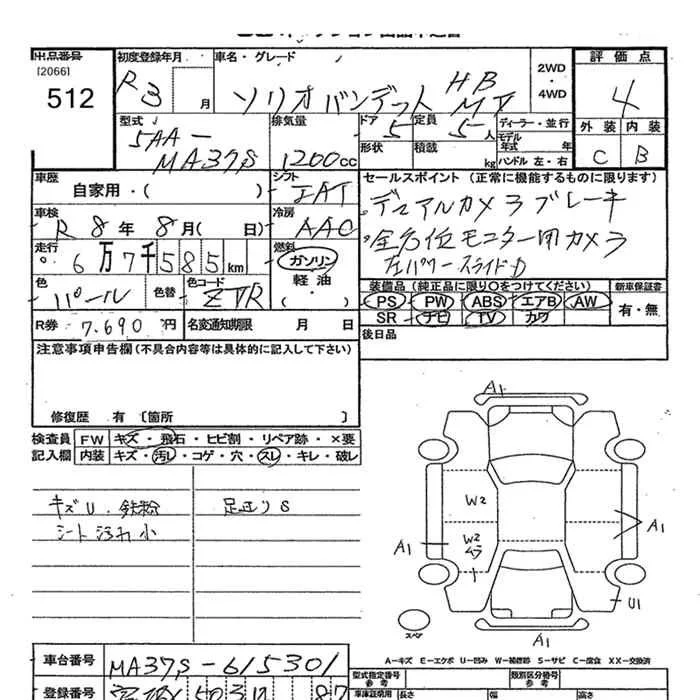 出品番号
[2066]
512
初度登録年月
R3 月
車名・グレード
ソリオバンデット HB MV
2WD
・
4WD
評価点
4
外装 内装
C B
型式
5AA-
MA37S
排気量
1200cc
ドア 5
定員 5人
ディーラー・並行
形状
積載 kg
モデル年式 年
ハンドル 左・右
車歴
自家用・( )
シフト
IAT
車検
R8年8月( 日)
冷房
AAC
走行
6万7千585km
燃料
ガソリン
軽油
・( )
色
パール
色替
色コード
ZVR
R券 7.690円
名変通知期限 月 日
セールスポイント (正常に機能するものに限ります)
・デュアルカメラブレーキ
・全方位モニター用カメラ
左パワースライドD
装備品(純正品に限り○をつけてください)
新車保証書
PS PW ABS エアB AW
有・無
SR ナビ TV カワ
後日品
注意事項申告欄(不具合内容等は具体的に記入して下さい)
修復歴 有 [箇所 ]
検査員
記入欄
FW キズ・飛石・ヒビ割・リペア跡・×要
内装 キズ・汚れ・コゲ・穴・スレ・キレ・破レ
キズU・鉄粉
シート汚れ小
足廻りS
A1
W2
W2
ムラ
A1
A1
U1
スペア
A1
A-キズ E-エクボ U-凹み W-補修跡 S-サビ C-腐食 XX-交換済
車台番号
MA37S-615301
登録番号
型式指定番号
類別区分番号
参考
車庫証明用
参考
長さ
幅
高さ